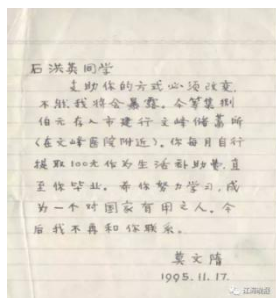 石洪英同学
支助你的方式必须改变,
不然我将会暴露。今筹集捌
佰元存入市建行文峰储蓄所
(在文峰医院附近)。你每月自行
提取100元作为生活补助费,直
至你毕业。希你努力学习,成
为一个对国家有用之人。今
后我不再和你联系。
莫文隋
1995.11.17.